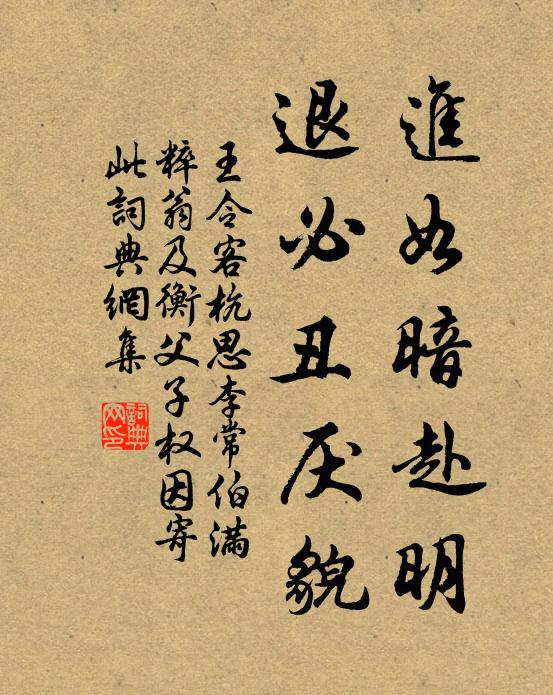 進如暗赴明
退必丑厌貌
王令客杭思李常伯满
粹翁及衡父子权因寄
此詞典網集
詞典网印